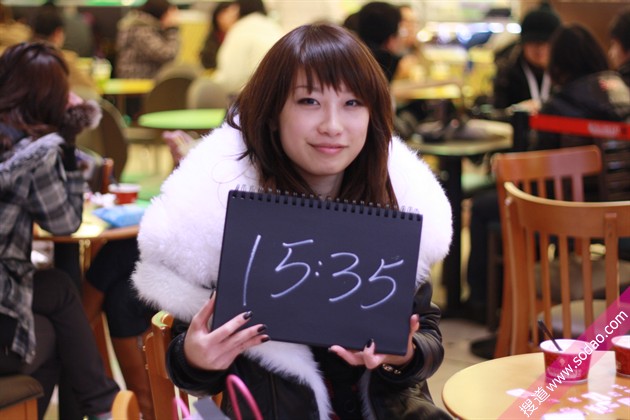 15:35
搜道 www.sodao.com